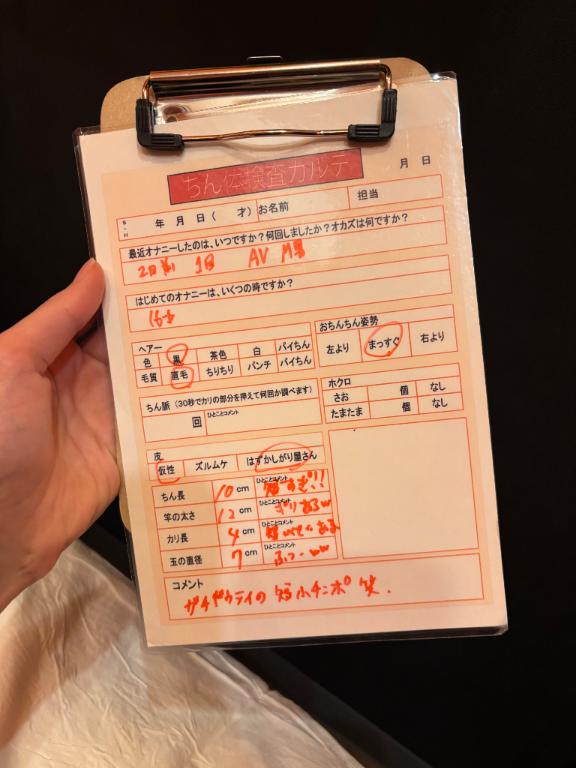 ちん体検査カルテ
月 日
年 月 日( 才) お名前 担当
最近オナニーしたのは、いつですか?何回しましたか?オカズは何ですか?
2日前 1回 AV M男
はじめてのオナニーは、いくつの時ですか?
ヘアー
色 黒 茶色 白 パイちん
毛質 直毛 ちりちり パンチ パイちん
おちんちん姿勢
左より まっすぐ 右より
ちん脈(30秒でカリの部分を押えて何回か調べます)
回 ひとことコメント
ホクロ
さお 個 なし
たまたま 個 なし
皮
仮性 ズルムケ はずかしがり屋さん
ちん長 10 cm ひとことコメント 短すぎ!!
竿の太さ 12 cm ひとことコメント
カリ長 4 cm ひとことコメント
玉の直径 7 cm ひとことコメント ふつーww
コメント
短小チンポ 笑.